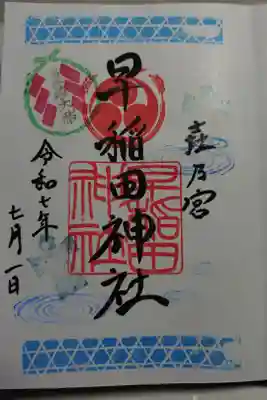 乃宮
早稲田神社
早稲田
神社
令和七年
七月一日